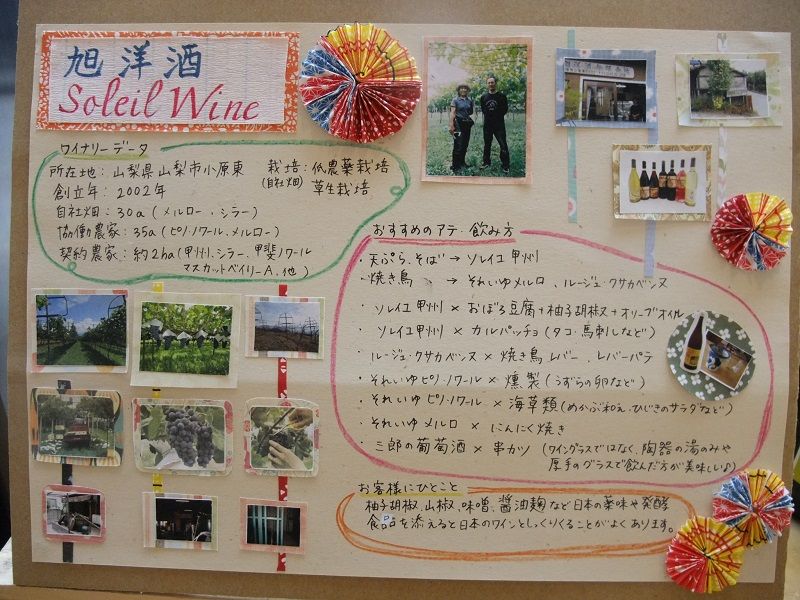 旭洋酒
Soleil Wine
ワイナリーデータ
所在地：山梨県山梨市小原東
創立年：2002年
自社畑：30a（メルロー、シラー）
協働農家：35a（ピノノワール、メルロー）
契約農家：約2ha（甲州、シラー、甲斐ノワール
マスカットベイリーA、他）
栽培：低農薬栽培
(自社畑) 草生栽培
おすすめのアテ・飲み方
・天ぷら、そば → ソレイユ甲州
・焼き鳥 → それいゆメルロ、ルージュ・クサカベンヌ
・ソレイユ甲州 × おぼろ豆腐+柚子胡椒+オリーブオイル
・ソレイユ甲州 × カルパッチョ（タコ・馬刺しなど）
・ルージュ・クサカベンヌ × 焼き鳥レバー、レバーパテ
・それいゆピノ・ノワール × 燻製（うずらの卵など）
・それいゆピノ・ノワール × 海草類（めかぶ和え、ひじきのサラダなど）
・それいゆメルロ × にんにく焼き
・三郎の葡萄酒 × 串カツ（ワイングラスではなく、陶器の湯のみや
厚手のグラスで飲んだ方が美味しい♪）
お客様にひとこと
柚子胡椒、山椒、味噌、醤油麹など日本の薬味や発酵
食品を添えると日本のワインとしっくりくることがよくあります。